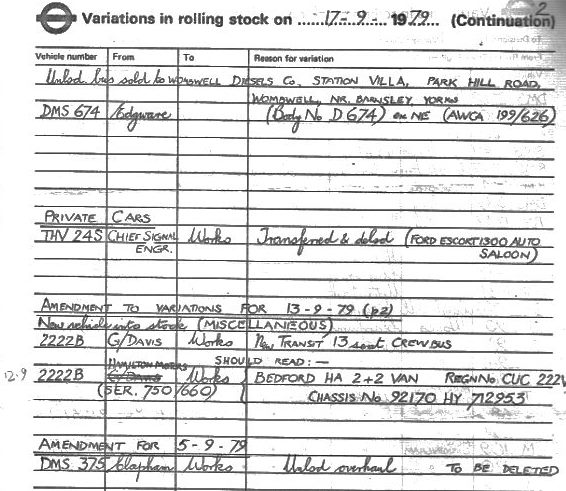 Variations in rolling stock on ......17-9-...1979... (Continuation) 2
Vehicle number From To Reason for variation
Unlsd bus sold to WOMBWELL DIESELS Co, STATION VILLA, PARK HILL ROAD,
WOMBWELL, NR. BARNSLEY, YORKS
DMS 674 Edgware (Body No D 674) ex NE (AWCA 199/626)
PRIVATE CARS
THV 24S CHIEF SIGNAL Works Transferred & delsd (FORD ESCORT 1300 AUTO
ENGR. SALOON)
AMENDMENT TO VARIATIONS FOR 13-9-79 (p2)
New vehicle into stock (MISCELLANEOUS)
2222B G/DAVIS Works New TRANSIT 13 seat CREWBUS
SHOULD READ:—
HAMILTON MOTORS
12-9 2222B G/DAVIS Works BEDFORD HA 2+2 VAN REGN No CUC 222V
(SER. 750/660) CHASSIS No 92170 HY 712953
AMENDMENT FOR 5-9-79
DMS 375 Clapham Works Unlsd overhaul TO BE DELETED